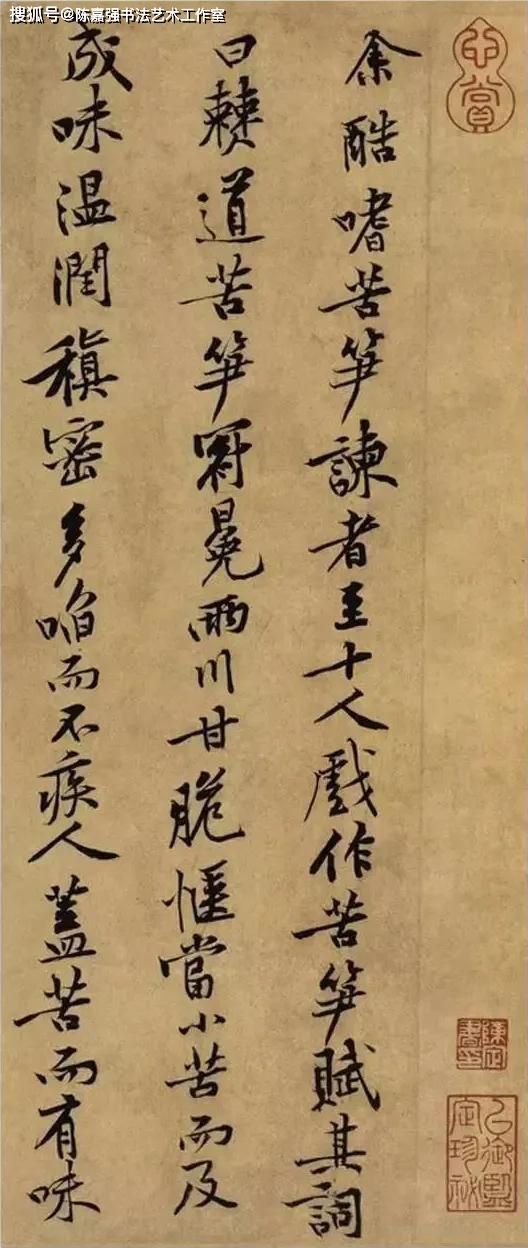 搜狐号@陈嘉强书法艺术工作室
心賞
余酷嗜苦笋諫者至十人戲作苦笋賦其詞
曰僰道苦笋冠冕兩川甘脆愜當小苦而及
成味温潤稹密多啗而不疾人蓋苦而有味